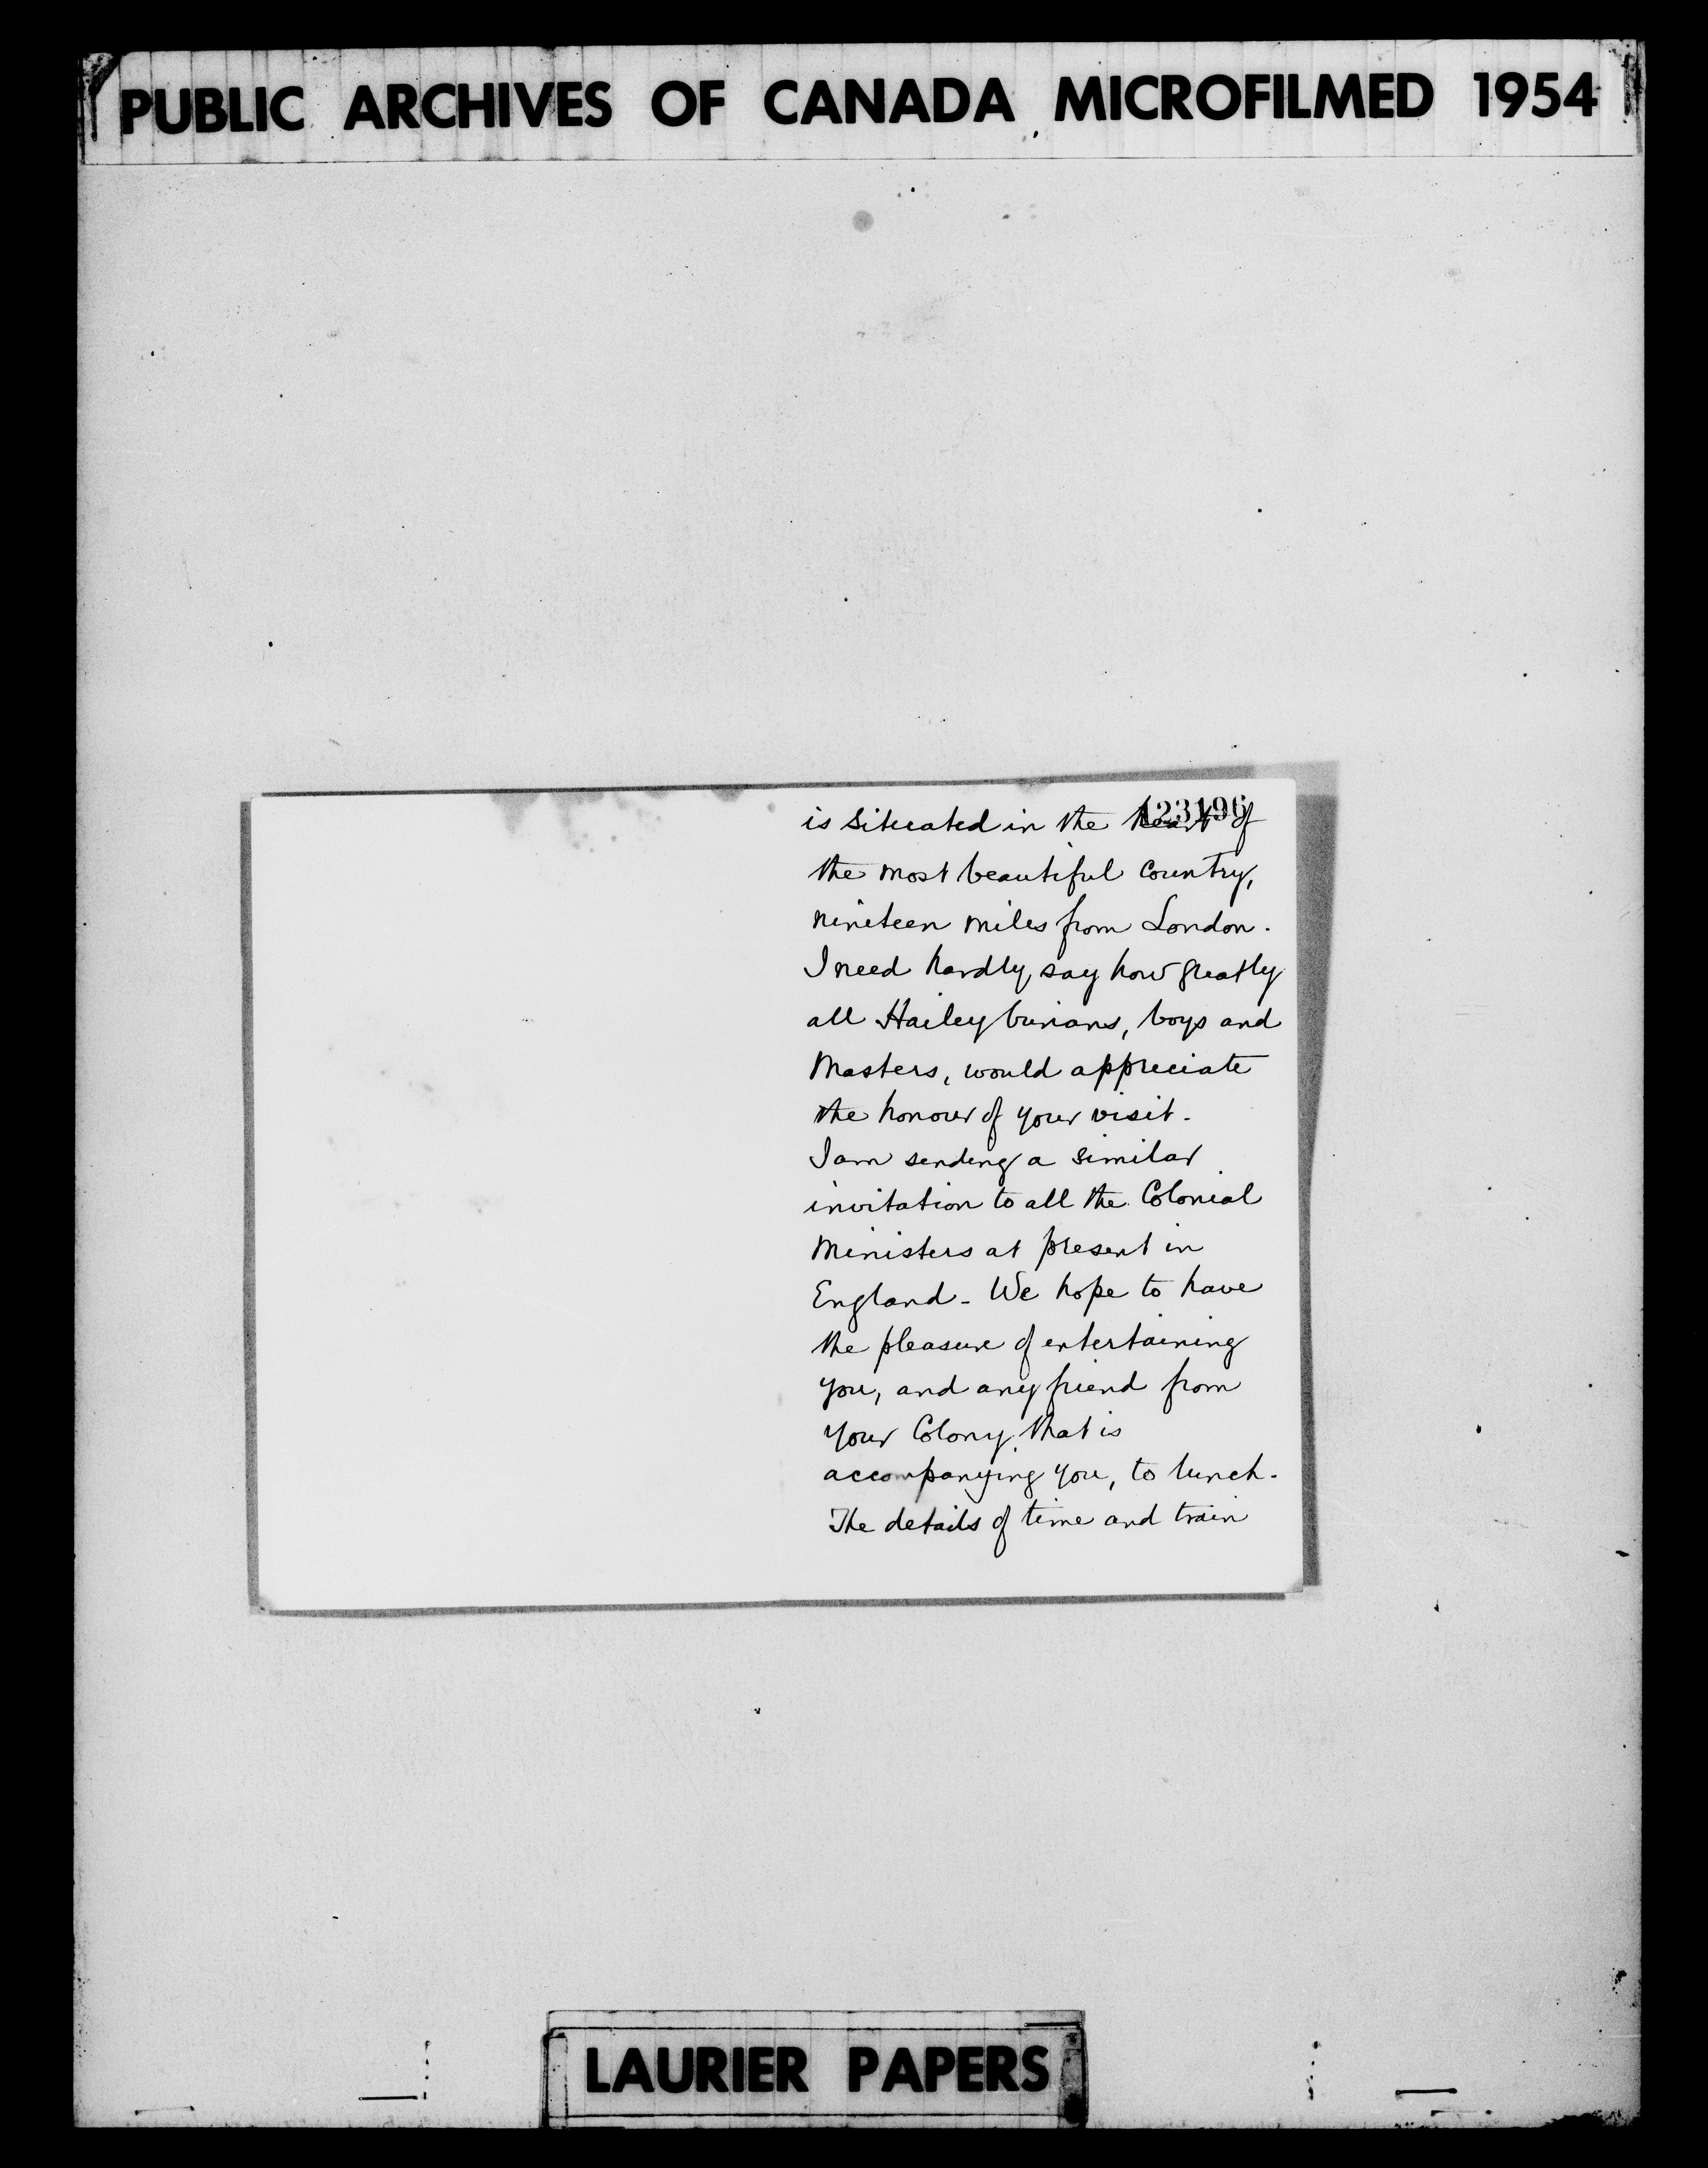 PUBLIC ARCHIVES OF CANADA MICROFILMED 1954
123196
is situated in the heart of
the most beautiful country,
nineteen miles from London.
I need hardly say how greatly
all Haileyburians, boys and
Masters, would appreciate
the honour of your visit.
I am sending a similar
invitation to all the Colonial
Ministers at present in
England - We hope to have
the pleasure of entertaining
you, and any friend from
your Colony that is
accompanying you, to lunch.
The details of time and train
LAURIER PAPERS